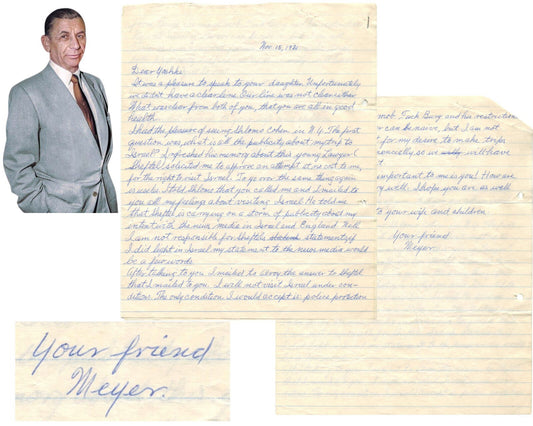 1
Nov 15, 1981
Dear Yoshke:
It was a pleasure to speak to your daughter. Unfortunately
we did not have a clear line. Our line was not clear either.
What we hear from both of you, that you are all in good
health.
I had the pleasure of seeing Shlomo Cohen in N.Y. The first
question was, what is all the publicity about my trip to
Israel? I refreshed his memory about this young Lawyer (
Sheftel) solicited me to approve an attempt at, no cost to me,
for the right to visit Israel. To go over the same thing again
is useless. I told Shlomo that you called me and I mailed to
you all my feelings about visiting Israel. He told me
that Sheftel is carrying on a storm of publicity about my
intent with the news media in Israel and England. Well
I am not responsible for Sheftel's statements, if
I did light in Israel my statement to the news media would
be a few words.
After talking to you I mailed to Leroy the answer to Sheftel
that I mailed to you. I will not visit Israel under con-
dition. The only condition I would accept is police protection
not. Fuck Burg and his restriction
can be naive, but I am not
for my desire to make trips
so we will have
important to me is you! How are
well. I hope you are as well
to your wife and children
Your friend
Meyer.
Your friend
Meyer.